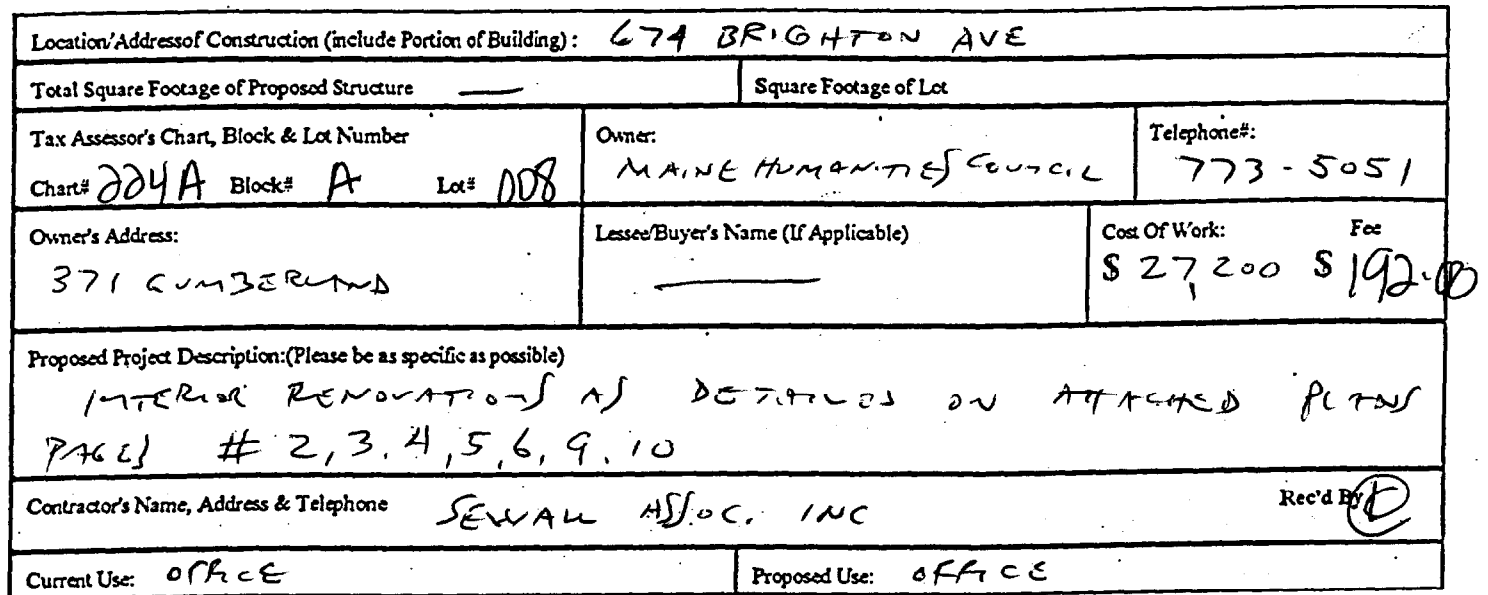 Location/Addressof Construction (include Portion of Building): 674 BRIGHTON AVE
Total Square Footage of Proposed Structure — Square Footage of Lot
Tax Assessor's Chart, Block & Lot Number Owner: Telephone#:
Chart# 224A Block# A Lot# 008 MAINE HUMANITIES COUNCIL 773-5051
Owner's Address: Lessee/Buyer's Name (If Applicable) Cost Of Work: Fee
371 CUMBERLAND — $ 27,200 $ 192.00
Proposed Project Description:(Please be as specific as possible)
INTERIOR RENOVATIONS AS DETAILED ON ATTACHED PLANS
PAGES # 2, 3, 4, 5, 6, 9, 10
Contractor's Name, Address & Telephone SEWALL ASSOC. INC Rec'd By
Current Use: OFFICE Proposed Use: OFFICE